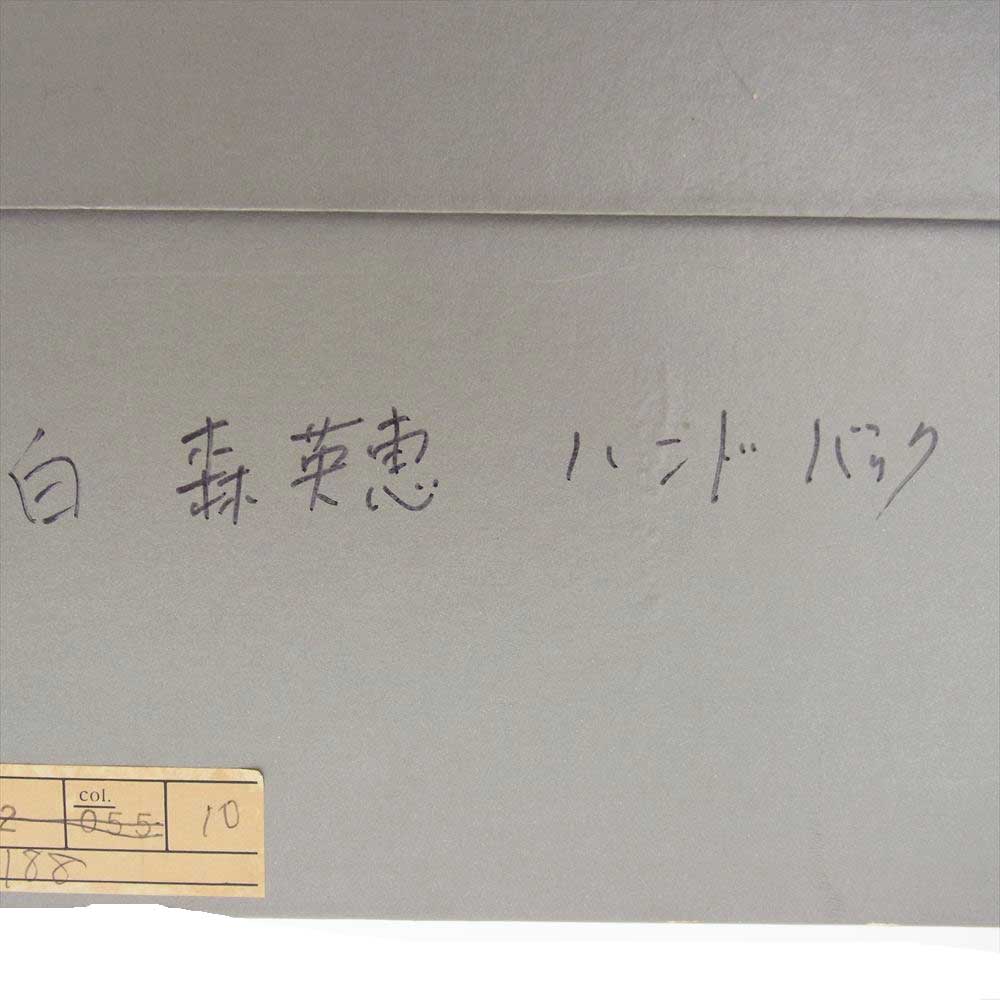 白 森英恵 ハンドバック
col.
2 055 10
188